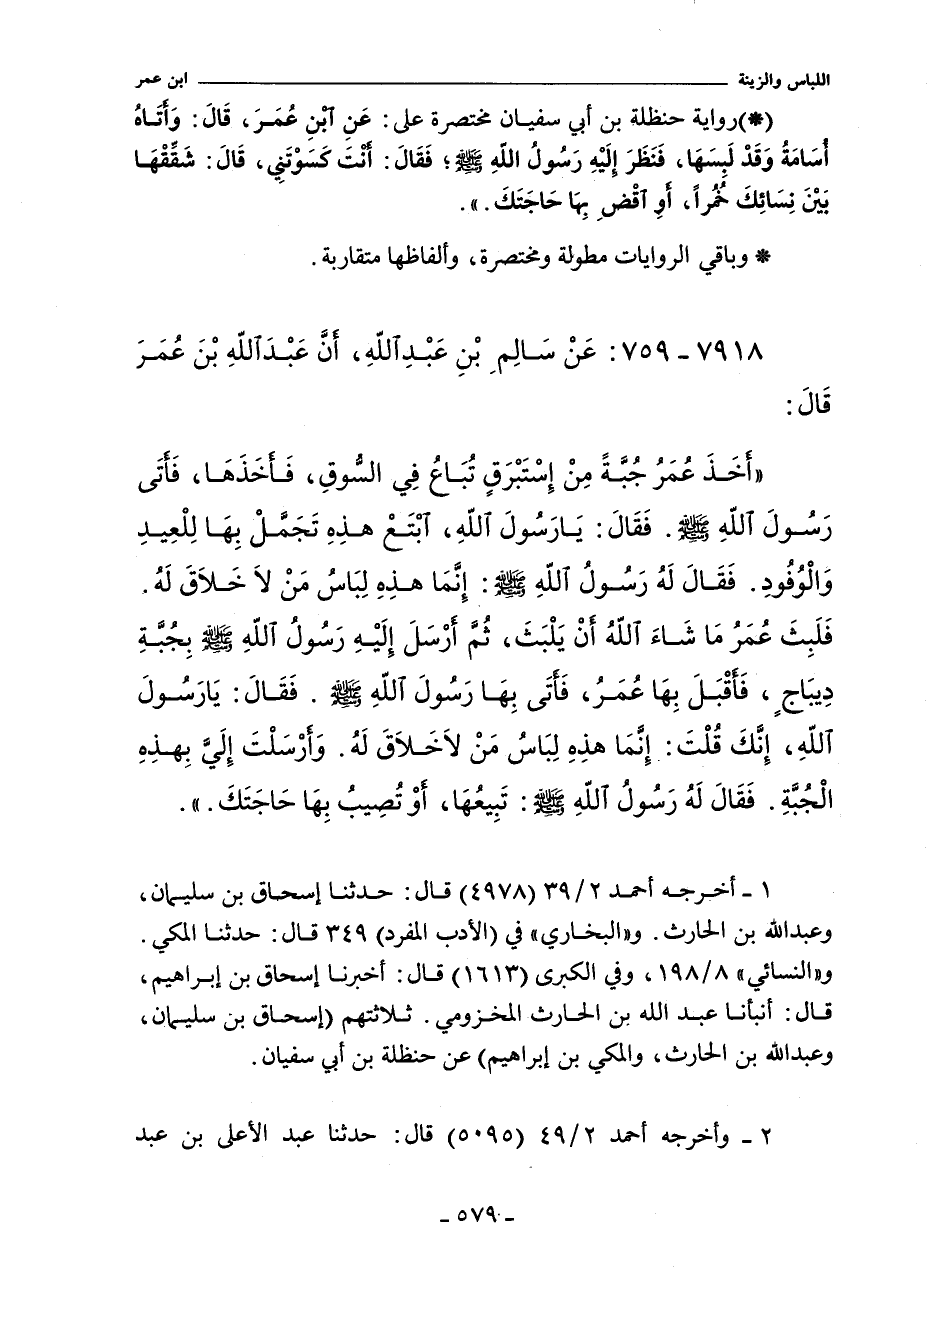 اللباس والزينة ــــــــــــــــــــــــــــــــــــــــ ابن عمر
(*) رواية حنظلة بن أبي سفيان مختصرة على: عَنِ ٱبْنِ عُمَرَ، قَالَ: وَأَتَاهُ
أُسَامَةُ وَقَدْ لَبِسَهَا، فَنَظَرَ إِلَيْهِ رَسُولُ اللّهِ ﷺ؛ فَقَالَ: أَنْتَ كَسَوْتَنِي، قَالَ: شَقِّقْهَا
بَيْنَ نِسَائِكَ خُمُراً، أَوِ ٱقْضِ بِهَا حَاجَتَكَ.».
* وباقي الروايات مطولة ومختصرة، وألفاظها متقاربة.
٧٩١٨ - ٧٥٩: عَنْ سَالِمِ بْنِ عَبْدِٱللّهِ، أَنَّ عَبْدَٱللّهِ بْنَ عُمَرَ
قَالَ:
«أَخَذَ عُمَرُ جُبَّةً مِنْ إِسْتَبْرَقٍ تُبَاعُ فِي السُّوقِ، فَأَخَذَهَا، فَأَتَى
رَسُولَ ٱللّهِ ﷺ. فَقَالَ: يَارَسُولَ ٱللّهِ، ٱبْتَعْ هذِهِ تَجَمَّلْ بِهَا لِلْعِيدِ
وَالْوُفُودِ. فَقَالَ لَهُ رَسُولُ ٱللّهِ ﷺ: إِنَّمَا هذِهِ لِبَاسُ مَنْ لاَ خَلاَقَ لَهُ.
فَلَبِثَ عُمَرُ مَا شَاءَ ٱللّهُ أَنْ يَلْبَثَ، ثُمَّ أَرْسَلَ إِلَيْهِ رَسُولُ ٱللّهِ ﷺ بِجُبَّةِ
دِيبَاجٍ، فَأَقْبَلَ بِهَا عُمَرُ، فَأَتَى بِهَا رَسُولَ ٱللّهِ ﷺ. فَقَالَ: يَارَسُولَ
ٱللّهِ، إِنَّكَ قُلْتَ: إِنَّمَا هذِهِ لِبَاسُ مَنْ لاَخَلاَقَ لَهُ. وَأَرْسَلْتَ إِلَيَّ بِهذِهِ
الْجُبَّةِ. فَقَالَ لَهُ رَسُولُ ٱللّهِ ﷺ: تَبِيعُهَا، أَوْ تُصِيبُ بِهَا حَاجَتَكَ.».
١ - أخرجه أحمد ٢/ ٣٩ (٤٩٧٨) قال: حدثنا إسحاق بن سليمان،
وعبدالله بن الحارث. و«البخاري» في (الأدب المفرد) ٣٤٩ قال: حدثنا المكي.
و«النسائي» ٨/ ١٩٨، وفي الكبرى (١٦١٣) قال: أخبرنا إسحاق بن إبراهيم،
قال: أنبأنا عبد الله بن الحارث المخزومي. ثلاثتهم (إسحاق بن سليمان،
وعبدالله بن الحارث، والمكي بن إبراهيم) عن حنظلة بن أبي سفيان.
٢ - وأخرجه أحمد ٢/ ٤٩ (٥٠٩٥) قال: حدثنا عبد الأعلى بن عبد
- ٥٧٩ -